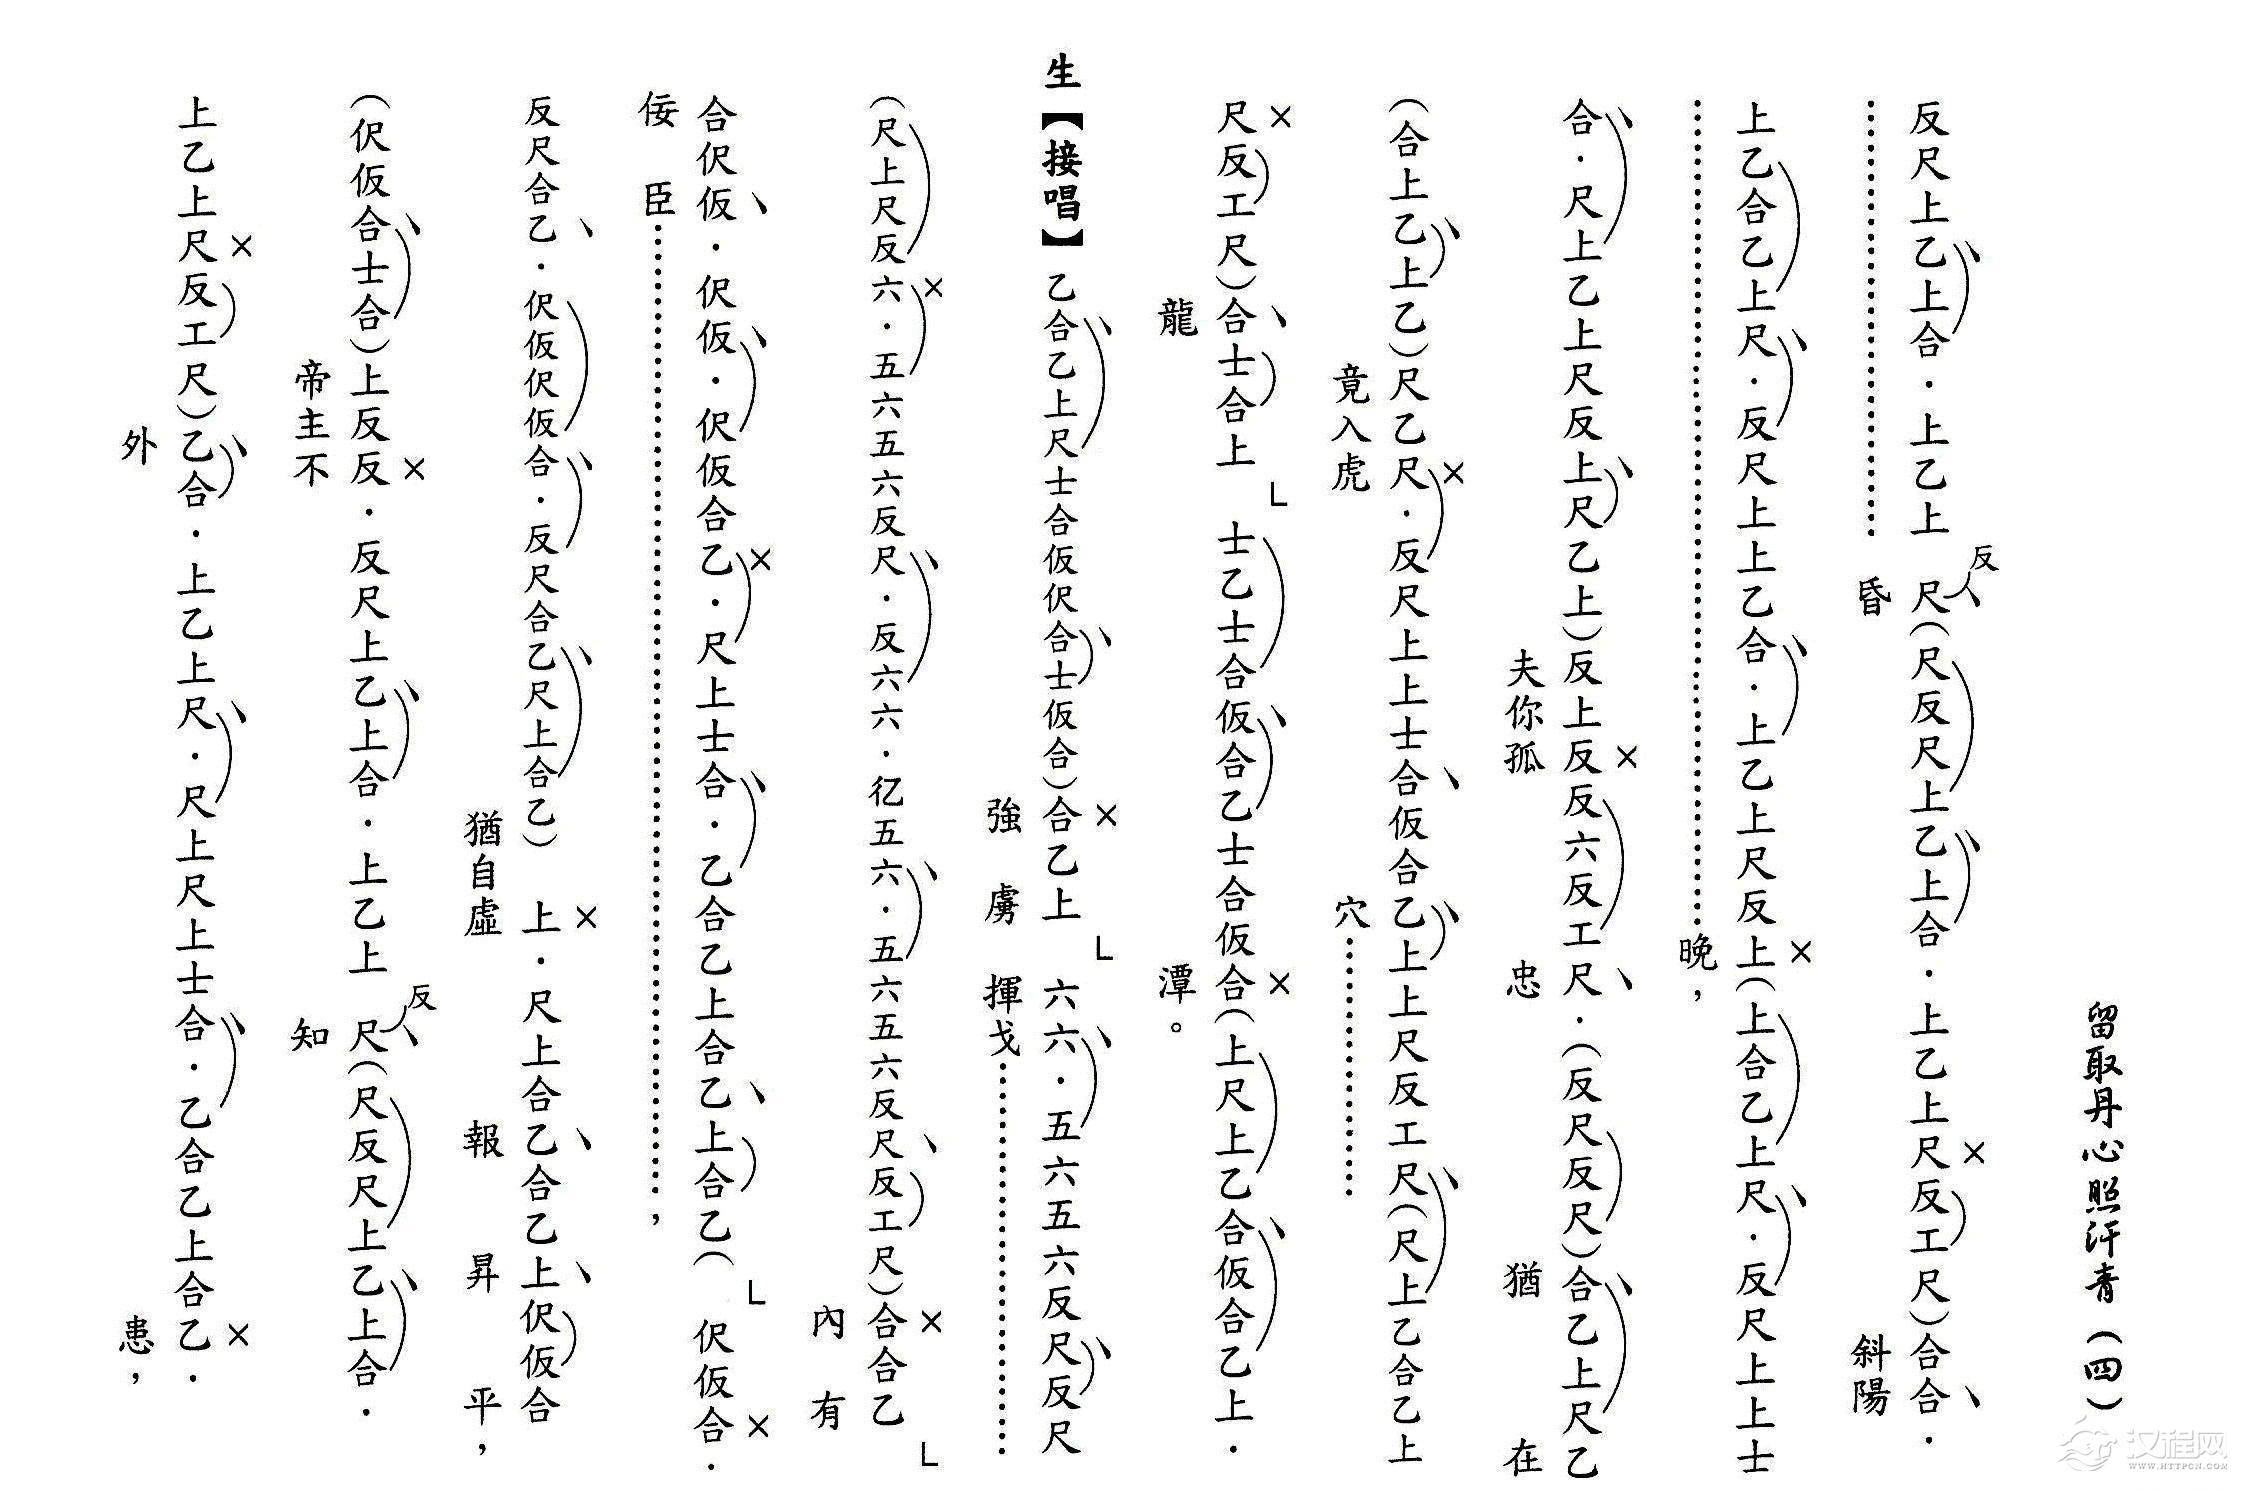 留取丹心照汗青（四）
反尺上乙上合．上乙上反尺（尺反尺上乙上合．上乙上尺反工尺）合合．
昏 斜陽
上乙合乙上尺．反尺上上乙合．上乙上尺反上（上合乙上尺．反尺上上士
晚，
合．尺上乙上尺反上尺乙上）反上反反六反工尺．（反尺反尺）合乙上尺乙
夫你孤 忠 猶 在
（合上乙上乙）尺乙尺．反尺上上士合仮合乙上上尺反工尺（尺上乙合乙上
竟入虎 穴
尺反工尺）合士合上 L 士乙士合仮合乙士合仮合（上尺上乙合仮合乙上．
龍 潭。
生【接唱】乙合乙上尺士合仮伬合士仮合）合乙上 L 六六．五六五六反尺反尺
強 虜 揮戈
（尺上尺反六．五六五六反尺．反六六．亿五六．五六五六反尺反工尺）合合乙 L
內 有
合伬仮．伬仮．伬仮合乙．尺上士合．乙合乙上合乙上合乙（ L 伬仮合．
佞 臣，
反尺合乙．伬仮伬仮合．反尺合乙尺上合乙）上．尺上合乙合乙上伬仮合
猶自虛 報 昇 平，
（伬仮合士合）上反反．反尺上乙上合．上乙上反尺（尺反尺上乙上合．
帝主不 知
上乙上尺反工尺）乙合．上乙上尺．尺上尺上士合．乙合乙上合乙．
外 患，
汉程网
WWW.HTTPCN.COM